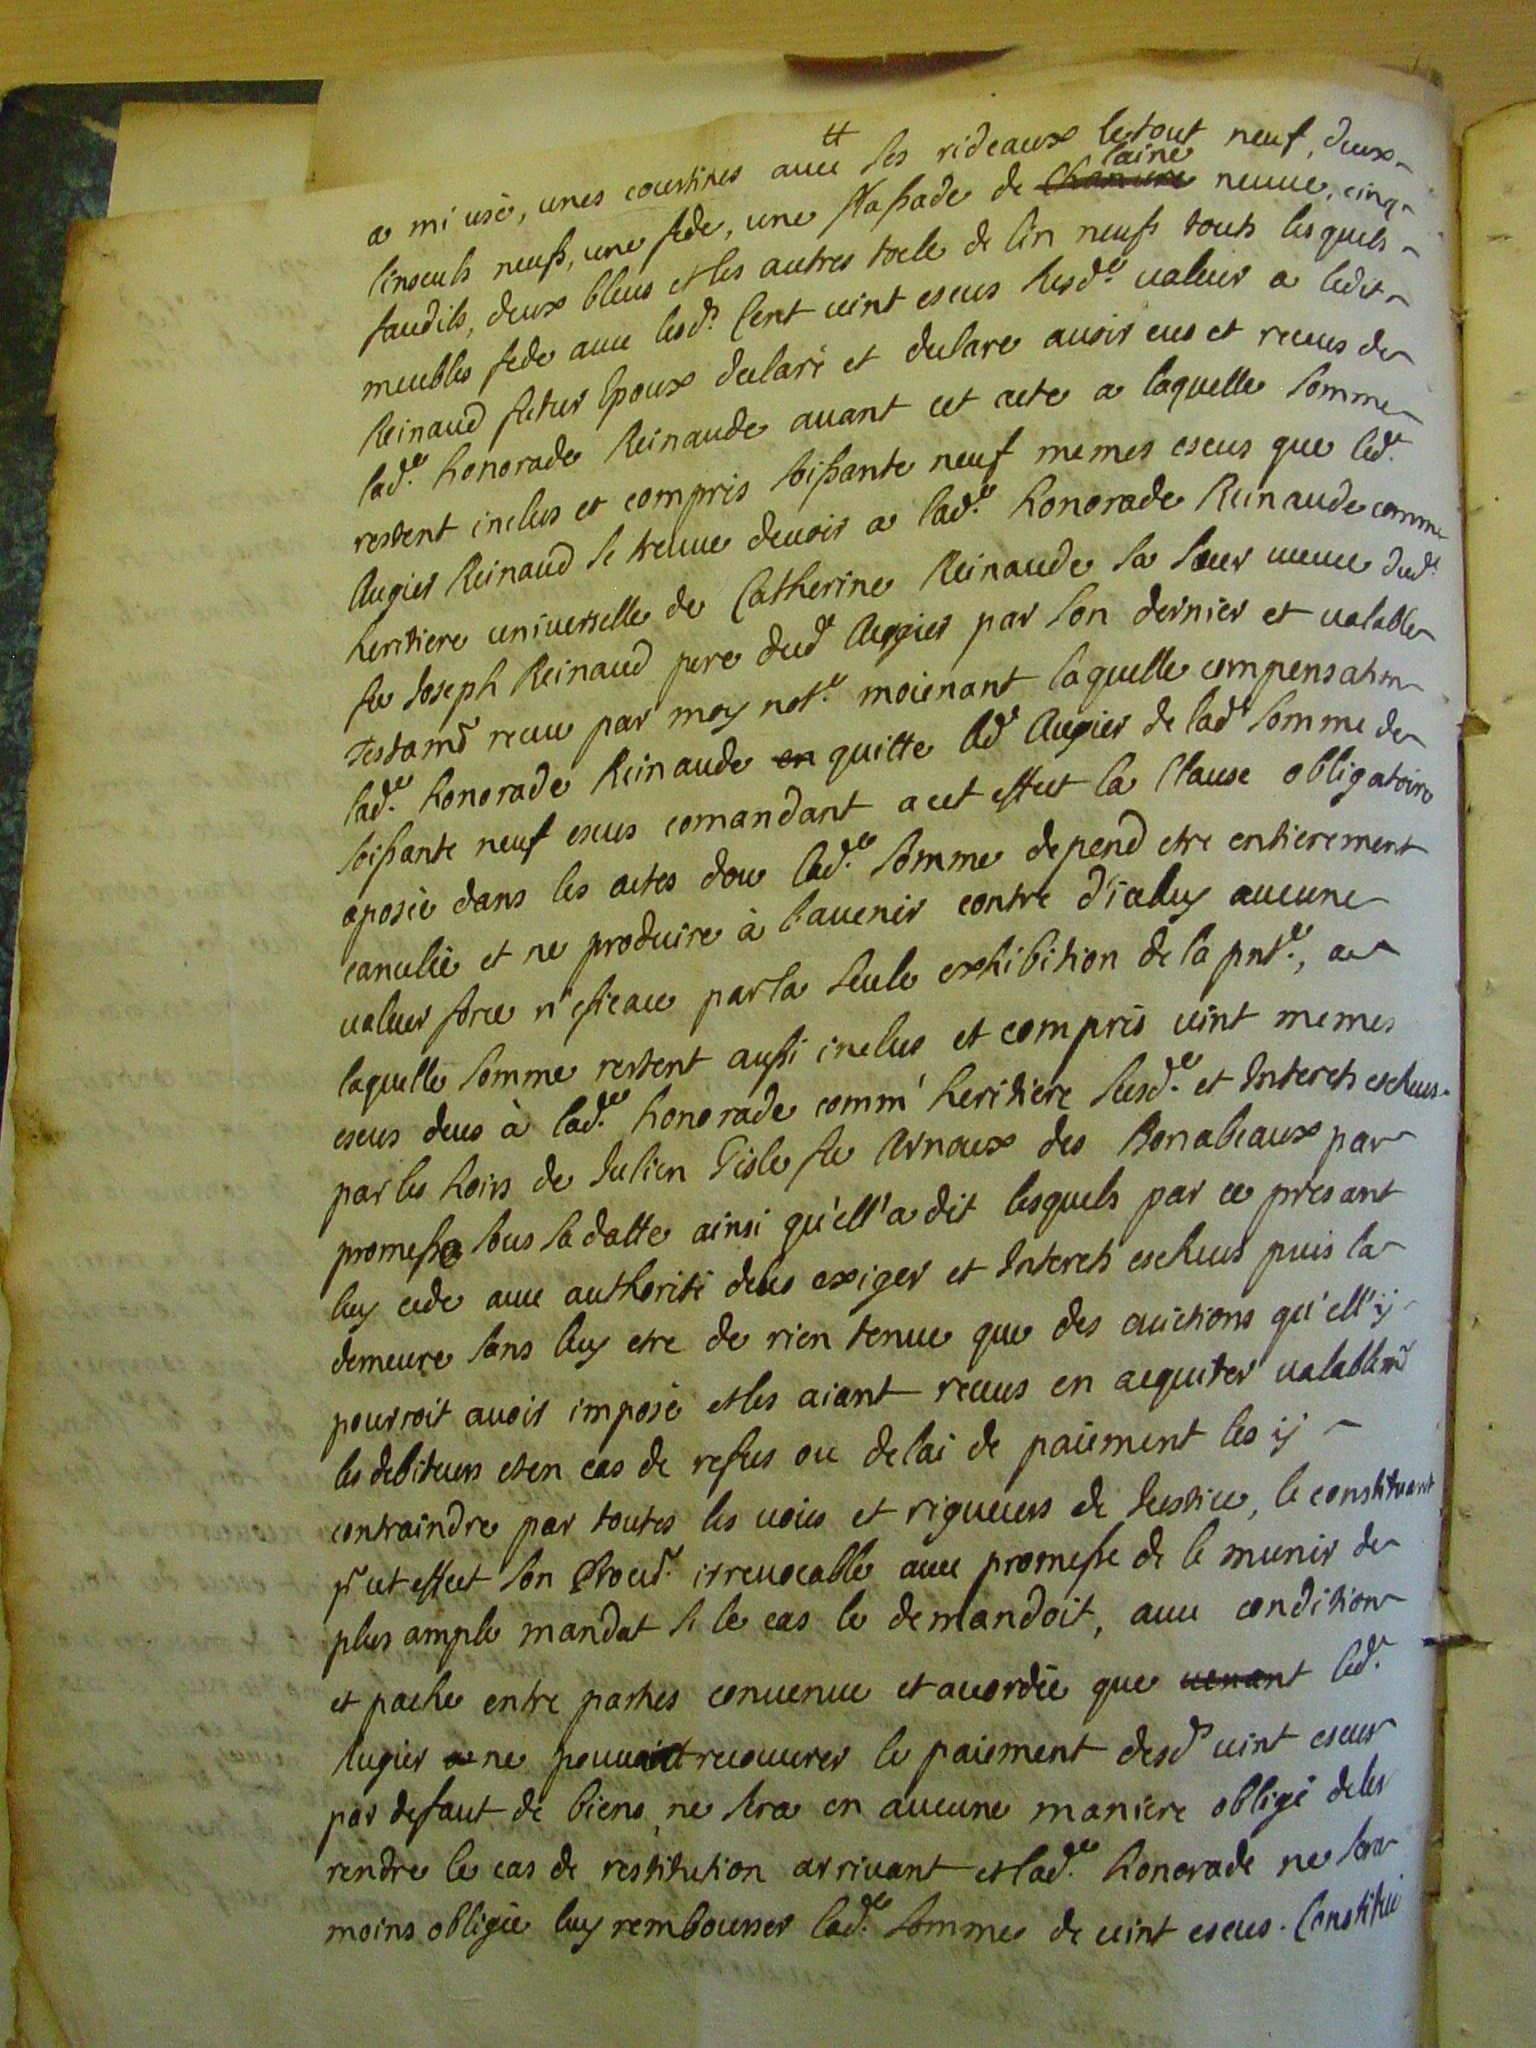 a mi usé, unes courtines avec tt ses rideaux le tout neuf, deux
linseuls neufs, une fede, une flassade de chanvre laine neuve, cinq
faudils, deux bleus et les autres toele de lin neufs touts lesquels
meubles fede avec lesd.s Cent vint escus susd.e valeur a ledit
Reinaud futur Epoux declaré et declare avoir eus et receus de
lad.e honorade Reinaude avant cet acte a laquelle somme
restent inclus et compris soissante neuf memes escus que led.t
Augier Reinaud se treuve devoir a lad.e honorade Reinaude comme
heritiere universelle de Catherine Reinaude sa sœur veuve dud.t
fu Joseph Reinaud pere dud.t Augier par son dernier et valable
Testamt receu par moy not.e moienant laquelle compensation
lad.e honorade Reinaude en quitte led.t Augier de lad.e somme de
soissante neuf escus comandant a cet effect la Clause obligatoire
aposée dans les actes dou lad.e somme depend etre entierement
canulée et ne produire à l'avenir contre d'iceluy aucune
valeur force n'eficace par la seule exhibition de la pnt.e, a
laquelle somme restent aussi inclus et compris vint memes
escus deus à lad.e honorade comm' heritiere susd.e et Interets escheus
par les hoirs de Julien Gisle fu Arnoux des Bonabeaux par
promesse sous sa datte ainsi qu'ell'a dit lesquels par ce presant
luy cede avec authorité de les exiger et Interets escheus puis la
demeure sans luy etre de rien tenue que des evictions qu'ell'ij
pourroit avoir imposé et les aiant receus en acquiter valablemt
les debiteurs et en cas de refus ou delai de paiement les ij
contraindre par toutes les voies et rigueurs de Justice, le constituant
pr cet effect son Procur. irrevocable avec promesse de le munir de
plus ample mandat si le cas le demandoit, avec condition
et pache entre parties convenue et acordée que venant led.t
Augier a ne pouvoit recouvrer le paiement desd.s vint escus
par defaut de biens, ne sera en aucune maniere obligé de les
rendre le cas de restitution arrivant et lad.e honorade ne sera
moins obligée luy rembourser lad.e somme de vint escus. Constitué